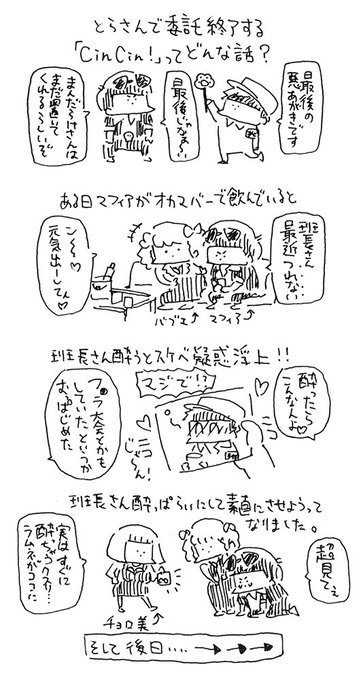 とらさんで委託終了する
「CinCin!」ってどんな話?
最後の
悪あがきです
最後じゃなぁい
まんだらけさんは
まだ置いて
くれるらしいぞ
ある日マフィアがオカマバーで飲んでいると
班長さん
最近つれない…
ン〜〜♡
元気出ーしてん♡
バブエ
マフィア
班長さん酔うとスケベ疑惑浮上!!
酔ったら
こんなんよ♡
マジで!?
ニコ
じゃーん!
していたといつか
班長さん酔っぱらいにして素直にさせようって
なりました。
超見てぇ
実はすぐに
酔っちゃうクスリ…
ラムネがココに
チョロ美
そして後日‥‥